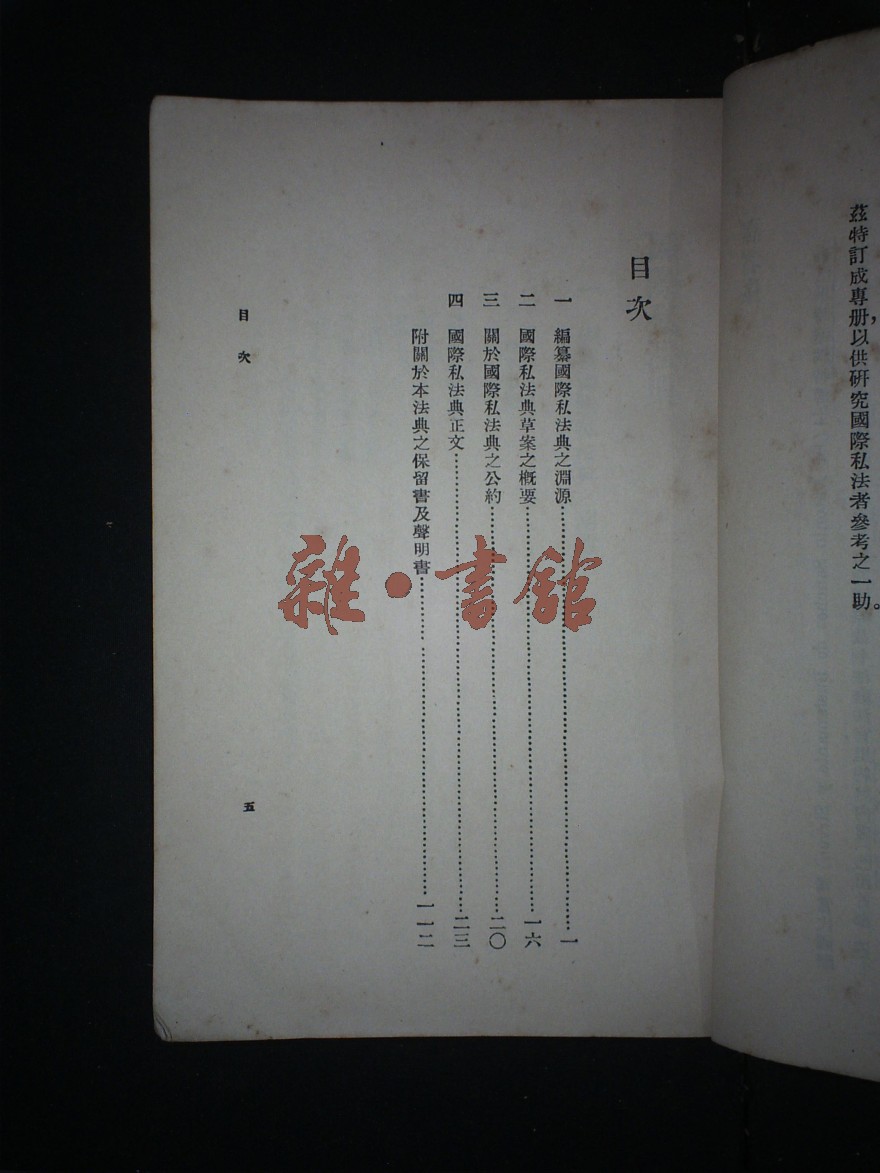 茲特訂成專册，以供研究國際私法者參考之一助。
目次
一　編纂國際私法典之淵源……一
二　國際私法典草案之概要……一六
三　關於國際私法典之公約……二〇
四　國際私法典正文……二三
附關於本法典之保留書及聲明書……一一二
目次　五
雜·書館